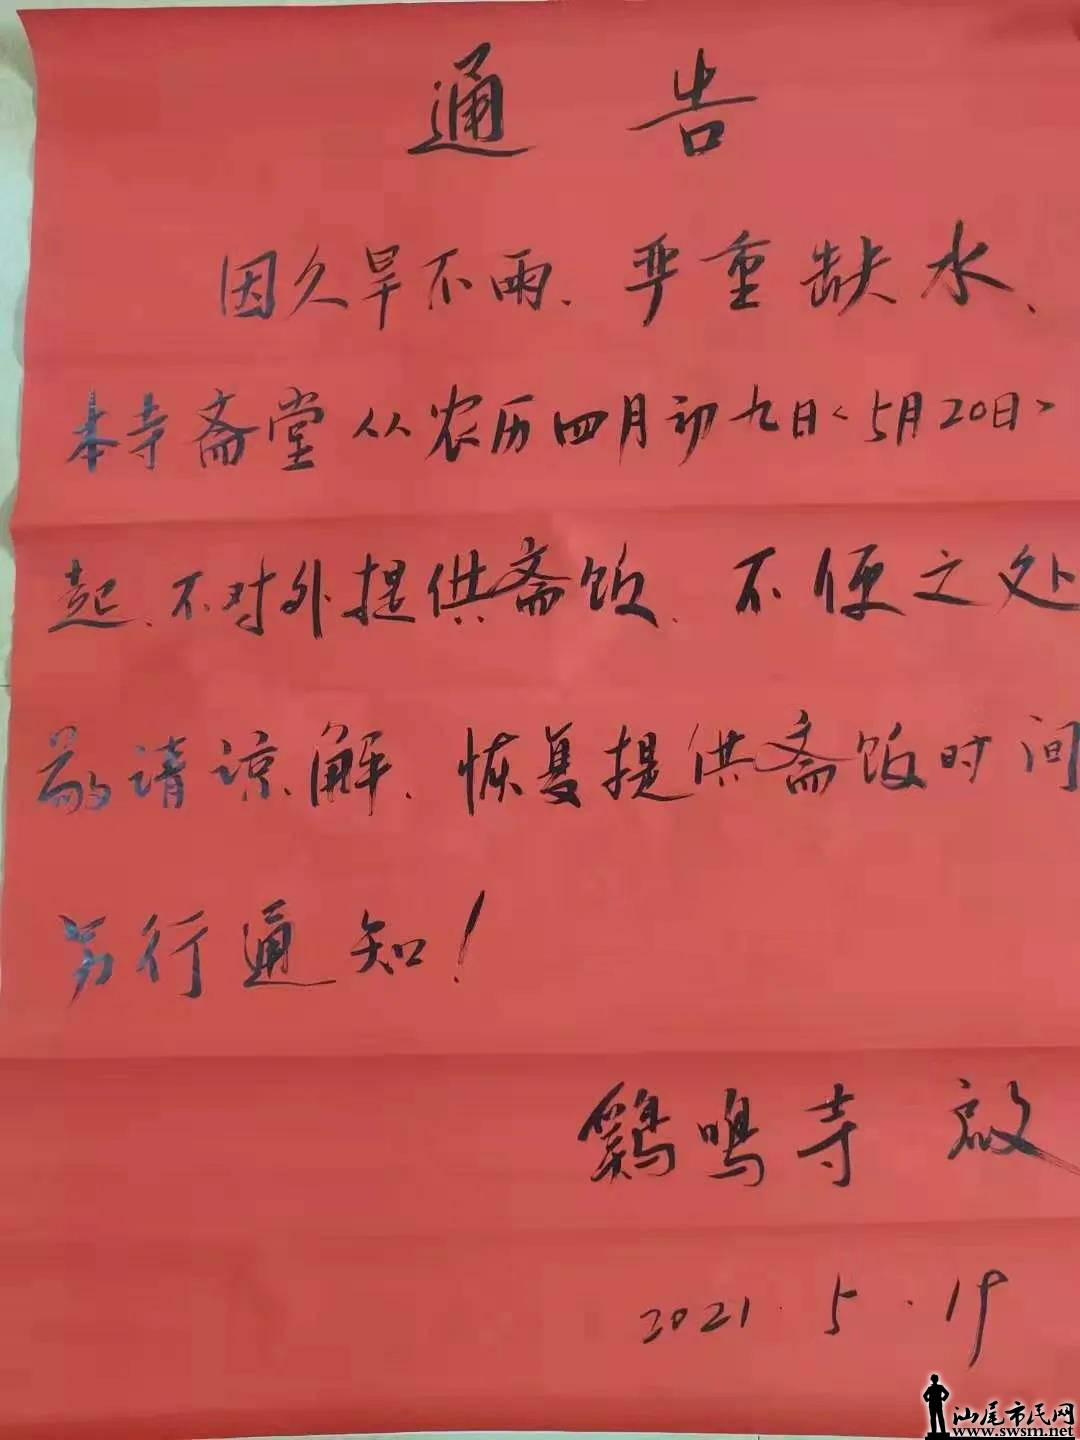 通告
因久旱不雨、严重缺水、
本寺斋堂从农历四月初九日<5月20日>
起、不对外提供斋饭、不便之处
敬请谅解、恢复提供斋饭时间
另行通知！
鷄鳴寺 啟
2021.5.19
汕尾市民网
www.swsm.net